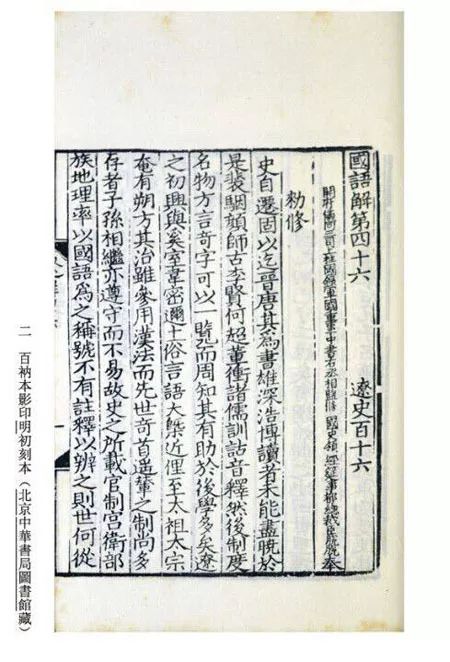 國語解第四十六　遼史百十六
開府儀同三司上柱國錄軍國重事中書右丞相監修　國史領　經筵事都總裁臣脫脫奉
勑修
史自遷固以迄晉唐其為書雄深浩博讀者未能盡曉於
是裴駰顔師古李賢何超董衝諸儒訓詁音釋然後制度
名物方言奇字可以一覽而周知其有助於後學多矣遼
之初興與奚室韋密邇土俗言語大槩近俚至太祖太宗
奄有朔方其治雖參用漢法而先世奇首遥輦之制尚多
存者子孫相繼亦遵守而不易故史之所載官制宮衛部
族地理率以國語為之稱號不有註釋以辨之則世何從
二　百衲本影印明初刻本（北京中華書局圖書館藏）